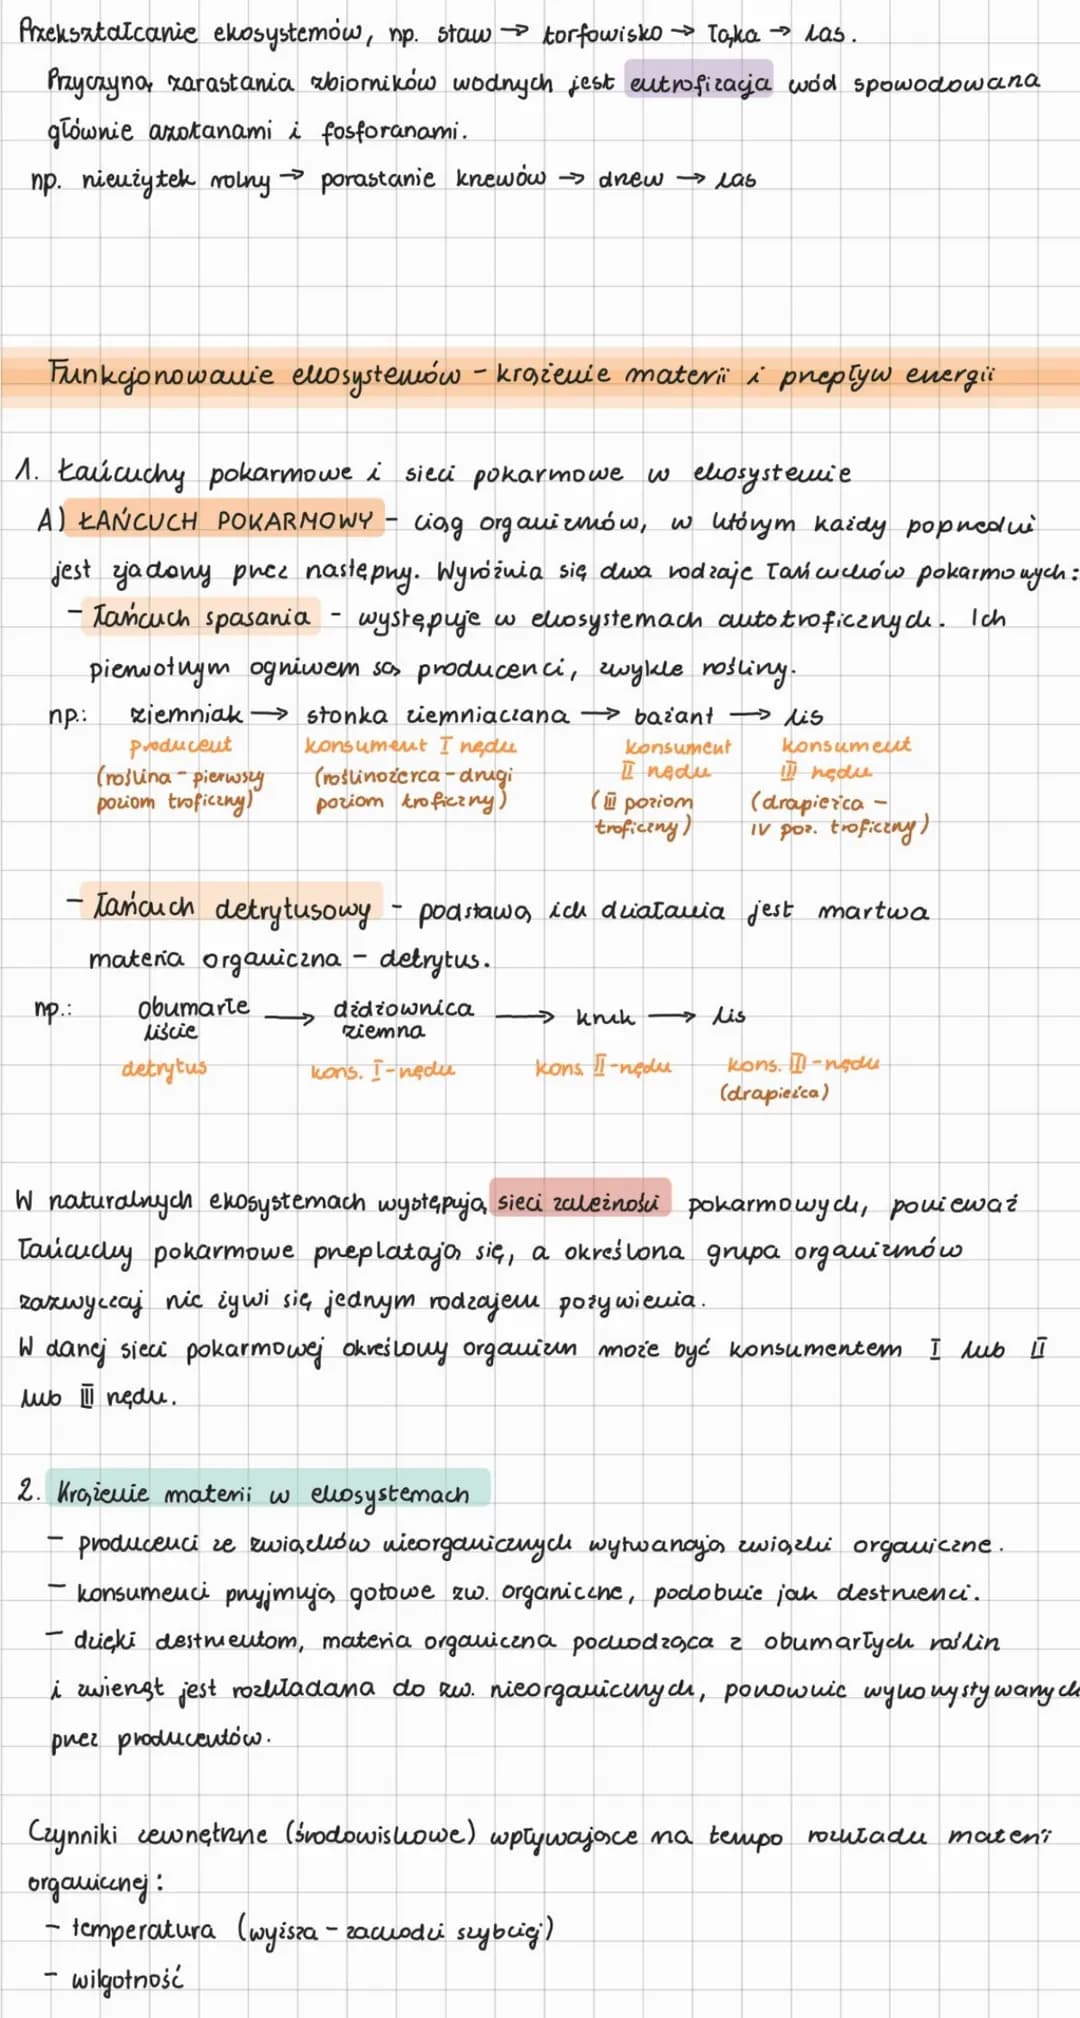 Przekształcanie ekosystemów, np. staw → torfowisko → łąka → las.
Przyczyną zarastania zbiorników wodnych jest eutrofizacja wód spowodowana
głównie azotanami i fosforanami.
np. nieużytek rolny → porastanie krzewów → drzew → las
Funkcjonowanie ekosystemów - krążenie materii i przepływ energii
1. Łańcuchy pokarmowe i sieci pokarmowe w ekosystemie
A) ŁAŃCUCH POKARMOWY - ciąg organizmów, w którym każdy poprzedni
jest zjadany przez następny. Wyróżnia się dwa rodzaje łańcuchów pokarmowych:
- łańcuch spasania - występuje w ekosystemach autotroficznych. Ich
pierwotnym ogniwem są producenci, zwykle rośliny.
np.: ziemniak → stonka ziemniaczana → bażant → lis
producent konsument I rzędu konsument konsument
(roślina - pierwszy (roślinożerca - drugi II rzędu III rzędu
poziom troficzny) poziom troficzny) (III poziom (drapieżca -
troficzny) IV poz. troficzny)
- łańcuch detrytusowy - podstawą ich działania jest martwa
materia organiczna - detrytus.
np.: obumarłe → dżdżownica → kruk → lis
liście ziemna
detrytus kons. I-rzędu kons II-rzędu kons. III-rzędu
(drapieżca)
W naturalnych ekosystemach występują sieci zależności pokarmowych, ponieważ
łańcuchy pokarmowe przeplatają się, a określona grupa organizmów
zazwyczaj nie żywi się jednym rodzajem pożywienia.
W danej sieci pokarmowej określony organizm może być konsumentem I lub II
lub III rzędu.
2. Krążenie materii w ekosystemach
- producenci ze związków nieorganicznych wytwarzają związki organiczne.
- konsumenci przyjmują gotowe zw. organiczne, podobnie jak destruenci.
- dzięki destruentom, materia organiczna pochodząca z obumarłych roślin
i zwierząt jest rozkładana do zw. nieorganicznych, ponownie wykorzystywanych
przez producentów.
Czynniki zewnętrzne (środowiskowe) wpływające na tempo rozkładu materii
organicznej:
- temperatura (wyższa - zachodzi szybciej)
- wilgotność